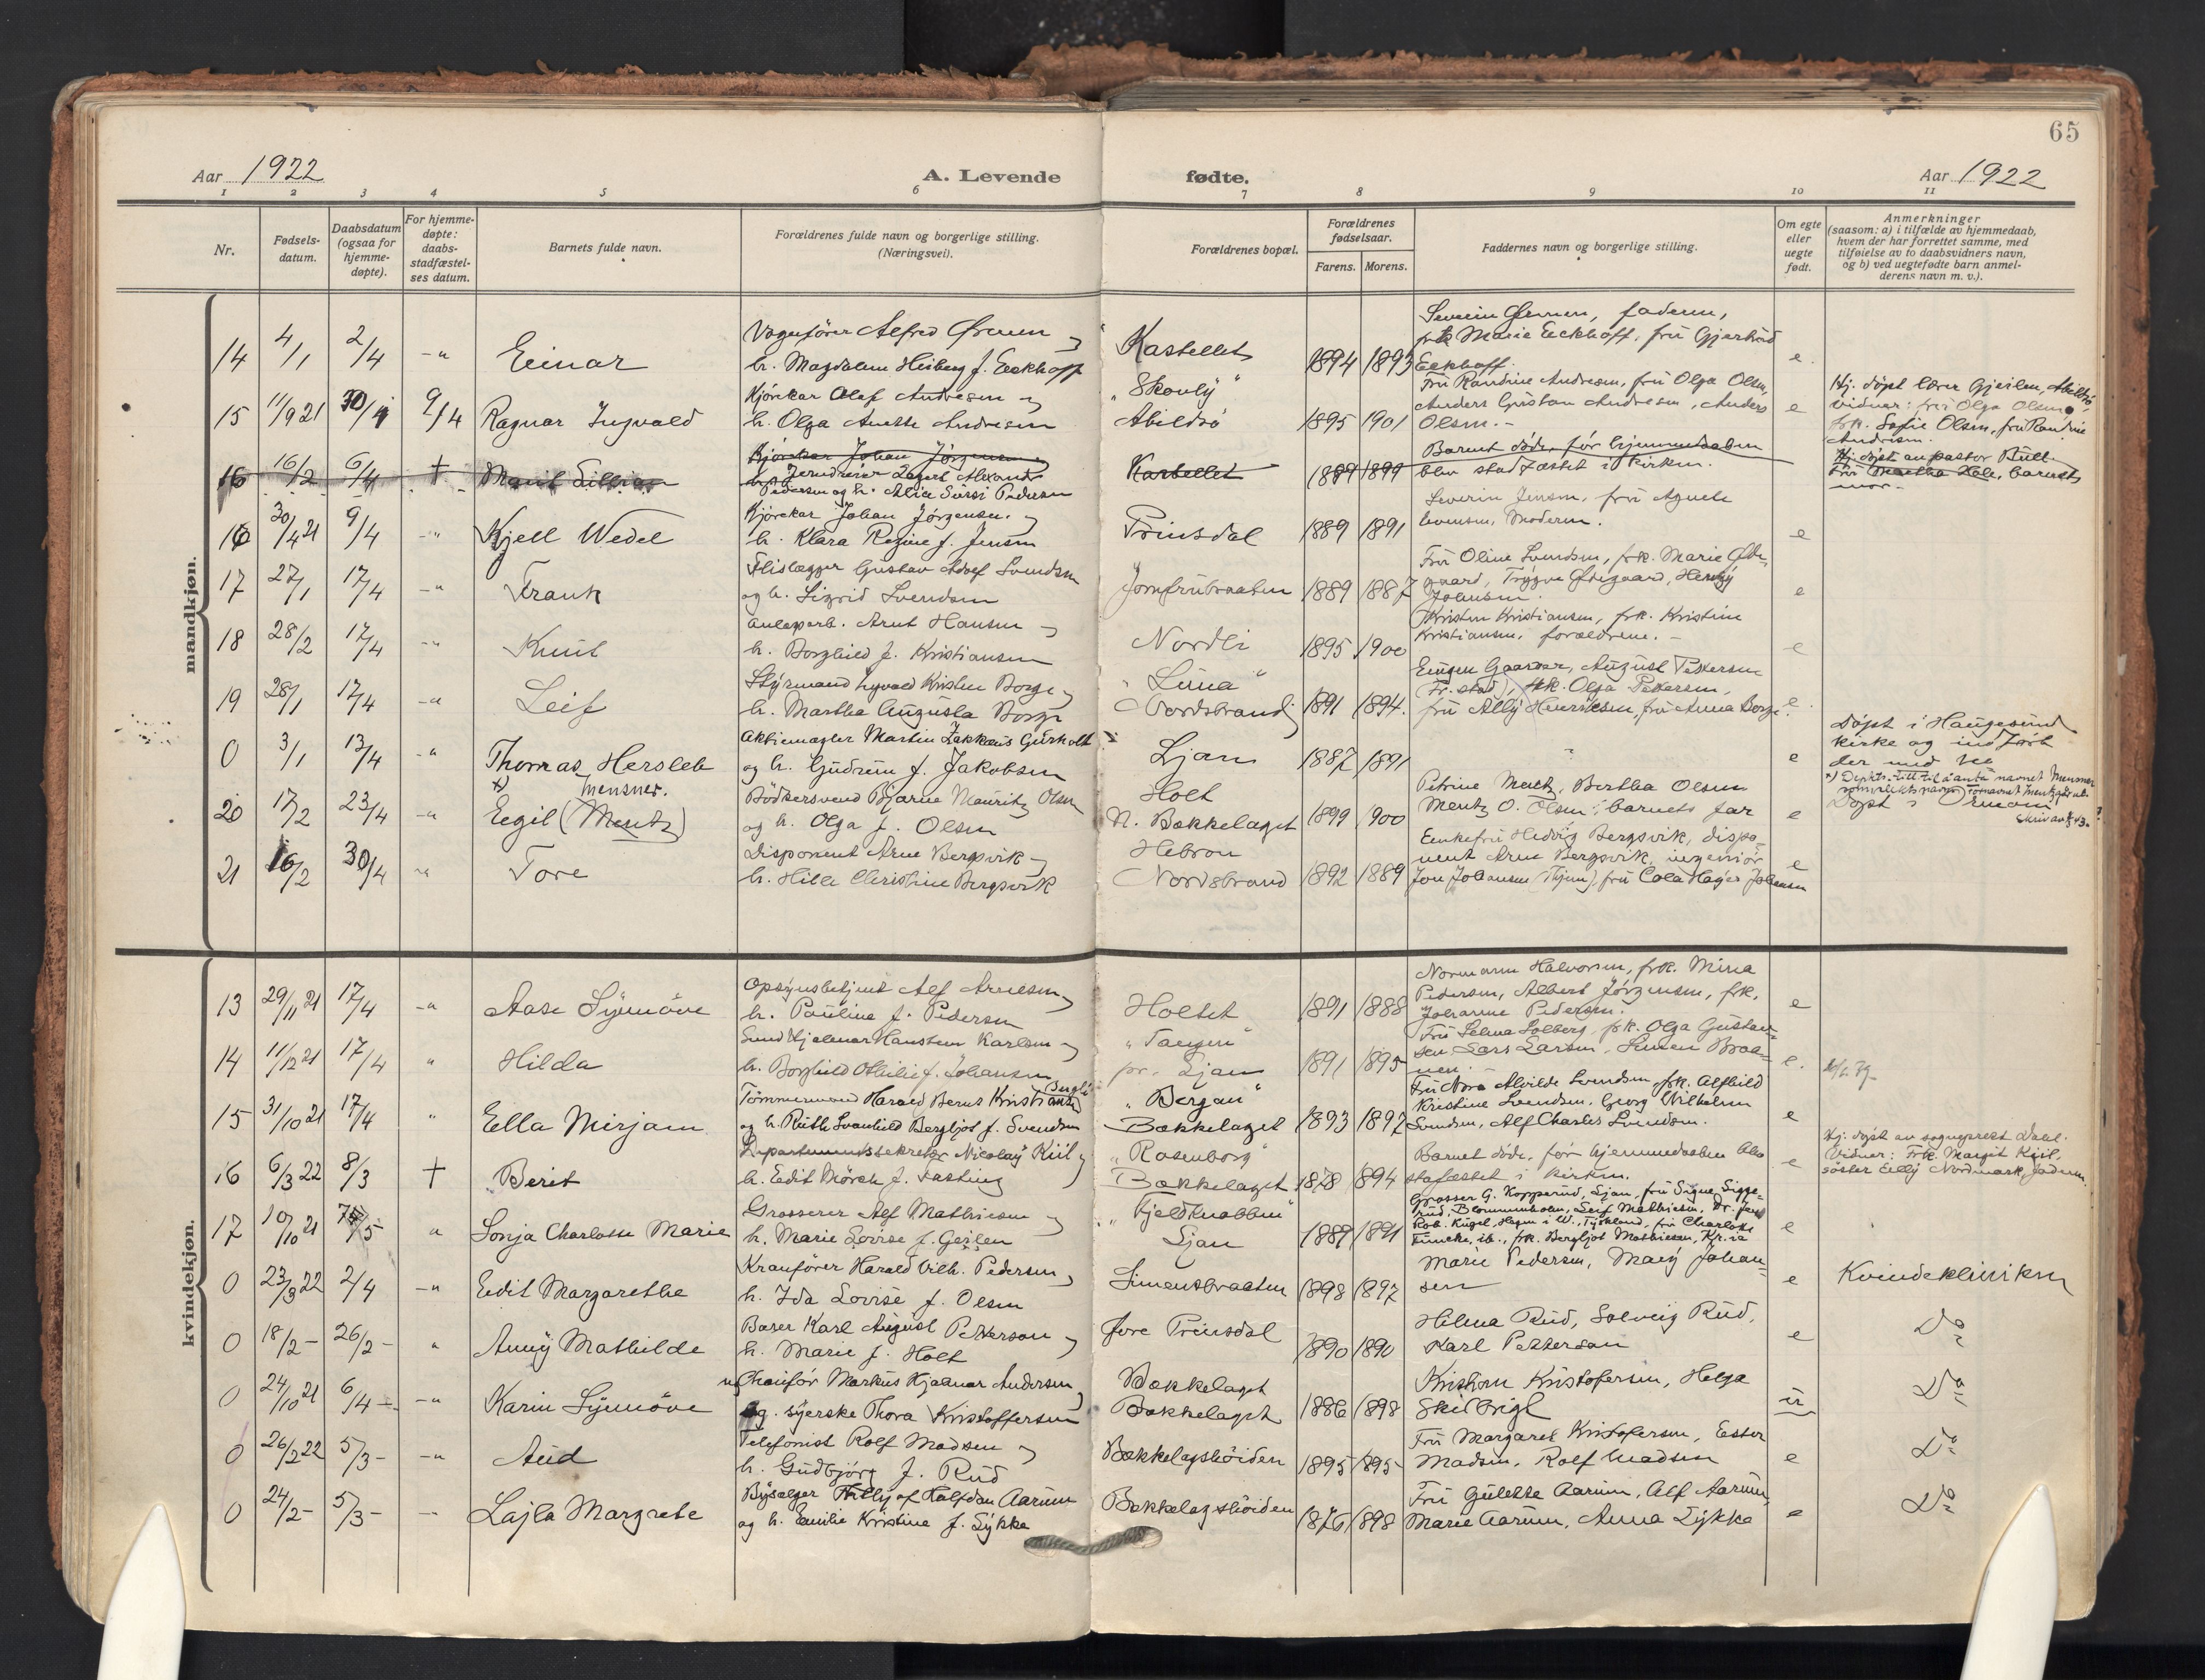 65
Aar 1922 A. Levende fødte. Aar 1922
1 2 3 4 5 6 7 8 9 10 11
Nr.
Fødsels-
datum.
Daabsdatum
(ogsaa for
hjemme-
døpte).
For hjemme-
døpte:
daabs-
stadfæstel-
ses datum.
Barnets fulde navn.
Forældrenes fulde navn og borgerlige stilling.
(Næringsvei).
Forældrenes bopæl.
Forældrenes
fødselsaar.
Farens. Morens.
Faddernes navn og borgerlige stilling.
Om egte
eller
uegte
født.
Anmerkninger
(saasom: a) i tilfælde av hjemmedaab,
hvem der har forrettet samme, med
tilføielse av to daabsvidners navn,
og b) ved uegtefødte barn anmel-
derens navn m. v.).
mandkjøn.
14 4/1 2/4 -"- Einar
Vognfører Alfred
h. Magdalene Heiberg f. Eckhoff
Kastellet 1894 1893
Severin, faderen,
frk Marie Eckhoff, fru Gjertrud
Eckhoff. e.
15 11/9 21 30/1 9/4 Ragnar Ingvald
Kjørekar Olaf Andresen og
h. Olga Anette Andresen
"Skouly"
Abildsø 1895 1901
Fru Randine Andresen, fru Olga Olsen,
Anders Gustav Andresen, Anders
Olsen. - e
Hj. døpt lærer Gjeilen, Abildsø,
vidner: fru Olga Olsen,
frk. Sofie Olsen, fru Randine
Andresen.
16 16/2 6/4 † Marit Lillian
Kjørekar Johan Jørgensen
Pedersen og h. Alice Pedersen
Kastellet 1889 1899
Barnet døde, før hjemmedaaben
blev stadfæstet i kirken.
Hj. døpt av pastor Rull.
Fru Martha Hole, barnets
mor.
16 30/4 21 9/4 -"- Kjell Wedel
Kjørekar Johan Jørgensen og
h. Klara Regine f. Jensen
Prinsdal 1889 1891
Severin Jensen, fru Agnete
Evensen, Moderen. e
17 27/1 17/4 -"- Frank
Fliselægger Gustav Adolf Svendsen
og h. Sigrid Svendsen
Jomfrubraaten 1889 1887
Fru Oline Svendsen, frk. Marie Øde-
gaard, Trygve Ødegaard, Henry
Johansen. e
18 28/2 17/4 -"- Knut
Anlegsarb. Arnt Hansen og
h. Borghild f. Kristiansen
Nordli 1895 1900
Kristen Kristiansen, frk. Kristine
Kristiansen, forældrene. - e
19 28/1 17/4 -"- Leif
Styrmand Ingvald Kristen Borge og
h. Martha Augusta Borge
"Luna"
Nordstrand 1891 1894.
Eugen Gaarder, August Pettersen
(Fr.stad), frk. Olga Pettersen,
fru Ally Henriksen, fru Anna Borge. e.
0 3/1 13/4 -"- Thomas Hersleb
Aktiemægler Martin Zakkæus Gurholt
og h. Gudrun f. Jakobsen
Ljan 1887 1891 " e
Døpt i Haugesund
kirke og indført
der med
20 17/2 23/4 -"- Egil (Mentz)
x) Mensner.
Bødkersvend Bjarne Mauritz Olsen
og h. Olga f. Olsen
Holt
N. Bekkelaget 1899 1900
Petrine Mentz, Bertha Olsen
Mentz O. Olsen, barnets far e
x) Depts. till. til å anta navnet Mensner
som slektsnavn
Døpt i
21 16/2 30/4 -"- Tore
Disponent Arne Bergsvik og
h. Hilda Christine Bergsvik
Hebron
Nordstrand 1892 1889
Enkefru Hedvig Bergsvik, dispo-
nent Arne Bergsvik, ingeniør
Jon Johansen, fru Cola Høyer Johansen e
kvindekjøn.
13 29/11 21 17/4 -"- Aase Synnöve
Opsynsbetjent Alf Arnesen og
h. Pauline f. Pedersen
Holtet 1891 1888
Normann Halvorsen, frk. Mina
Pedersen, Albert Jørgensen, frk.
Johanne Pedersen. e
14 11/12 21 17/4 " Hilda
Hjalmar Karlsen og
h. Borghild Othilie f. Johansen
"Tangen"
pr. Ljan 1891 1895
Fru Selma Solberg, frk. Olga Gustav-
sen Lars Larsen, Simen Braa-
nen. e.
15 31/10 21 17/4 " Ella Mirjam
Tømmermand Harald Bernt Kristiansen
og h. Ruth Svanhild Bergljot f. Svendsen
"Bergan"
Bækkelaget 1893 1897
Fru Nora Alvilde Svendsen, frk. Alfhild
Kristine Svendsen, Georg Vilhelm
Svendsen, Alf Charles Svendsen. e
16 6/3 22 8/3 † Berit
Departementssekretær Nicolay Kiil og
h. Edit Mörch f. Fasting
"Rosenborg"
Bækkelaget 1878 1894
Barnet døde, før hjemmedaaben blev
stafæstet i kirken. e
Hj. døpt av sogneprest Dahl.
Vidner: Frk. Margit Kiil,
søster Elly Nordmark, faderen.
17 10/10 21 7/5 " Sonja Charlotte Marie
Grosserer Alf Mathiesen og
h. Marie Lovise f. Geilen
"Fjeldknabben"
Ljan 1889 1891
Grosser G. Kopperud, Ljan, fru Signe Sigge-
rud, Blommenholm, Leif Mathiesen, Dr.
Rob. Kugel, Hagen i W., Tyskland, fru Charlotte
Funcke, ib., frk. Bergljot Mathiesen, Kr.ia e
0 23/3 22 2/4 -"- Edit Margarethe
Kranfører Harald Vilh. Pedersen og
h. Ida Lovise f. Olsen
Simensbraaten 1898 1897
Marie Pedersen, Mary Johan-
sen e
Kvindekliniken
0 18/2 - 26/2 - " Anny Mathilde
Baser Karl August Petterson og
h. Marie f. Holt
Øvre Prinsdal 1890 1890
Helma Rud, Solveig Rud,
Karl Petterson e
Do
0 24/10 21 6/4 - -"- Karin Synnöve
Chauför Markus Hjalmar Andersen
og syerske Thora Kristoffersen
Bækkelaget
Bækkelaget 1886 1898
Kristofersen, Helga
u
Do
0 26/2 22 5/3 - -"- Aud
Telefonist Rolf Madsen og
h. Gudbjørg f. Rud
Bækkelagshöiden 1895 1895
Fru Margaret Kristofersen, Ester
Madsen, Rolf Madsen e
Do
0 24/2 - 5/3 - -"- Lajla Margrete
Halfdan Aarum
og h. Emilie Kristine f. Lykke
Bækkelagshöiden 1876 1898
Fru Gulette Aarum, Alf Aarum,
Marie Aarum, Anna Lykke e
Do